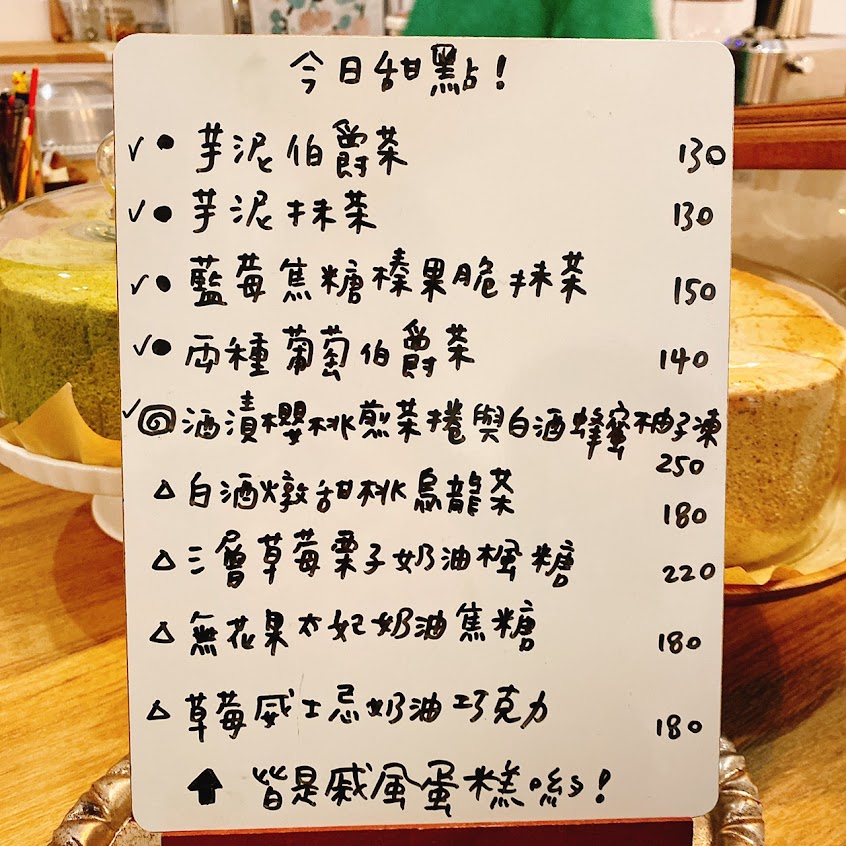 今日甜點！
✓ ● 芋泥伯爵茶 130
✓ ● 芋泥抹茶 130
✓ ● 藍莓焦糖榛果脆抹茶 150
✓ ● 兩種葡萄伯爵茶 140
✓ 酒漬櫻桃煎茶捲與白酒蜂蜜柚子凍
250
△ 白酒燉甜桃烏龍茶 180
△ 三層草莓栗子奶油楓糖 220
△ 無花果太妃奶油焦糖 180
△ 草莓威士忌奶油巧克力 180
⬆ 皆是戚風蛋糕喲！